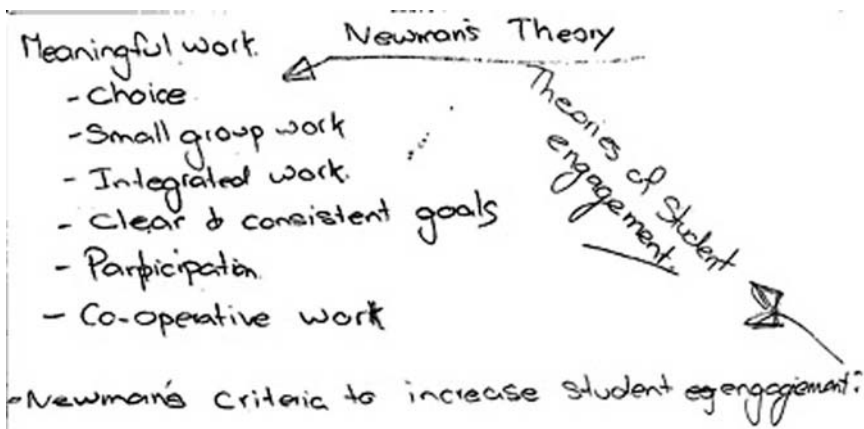 Newman's Theory
Meaningful work.
- Choice
- Small group work
- Integrated work.
- Clear & consistent goals
- Participation
- Co-operative work
Theories of Student
engagement.
- Newman's criteria to increase student engagement.